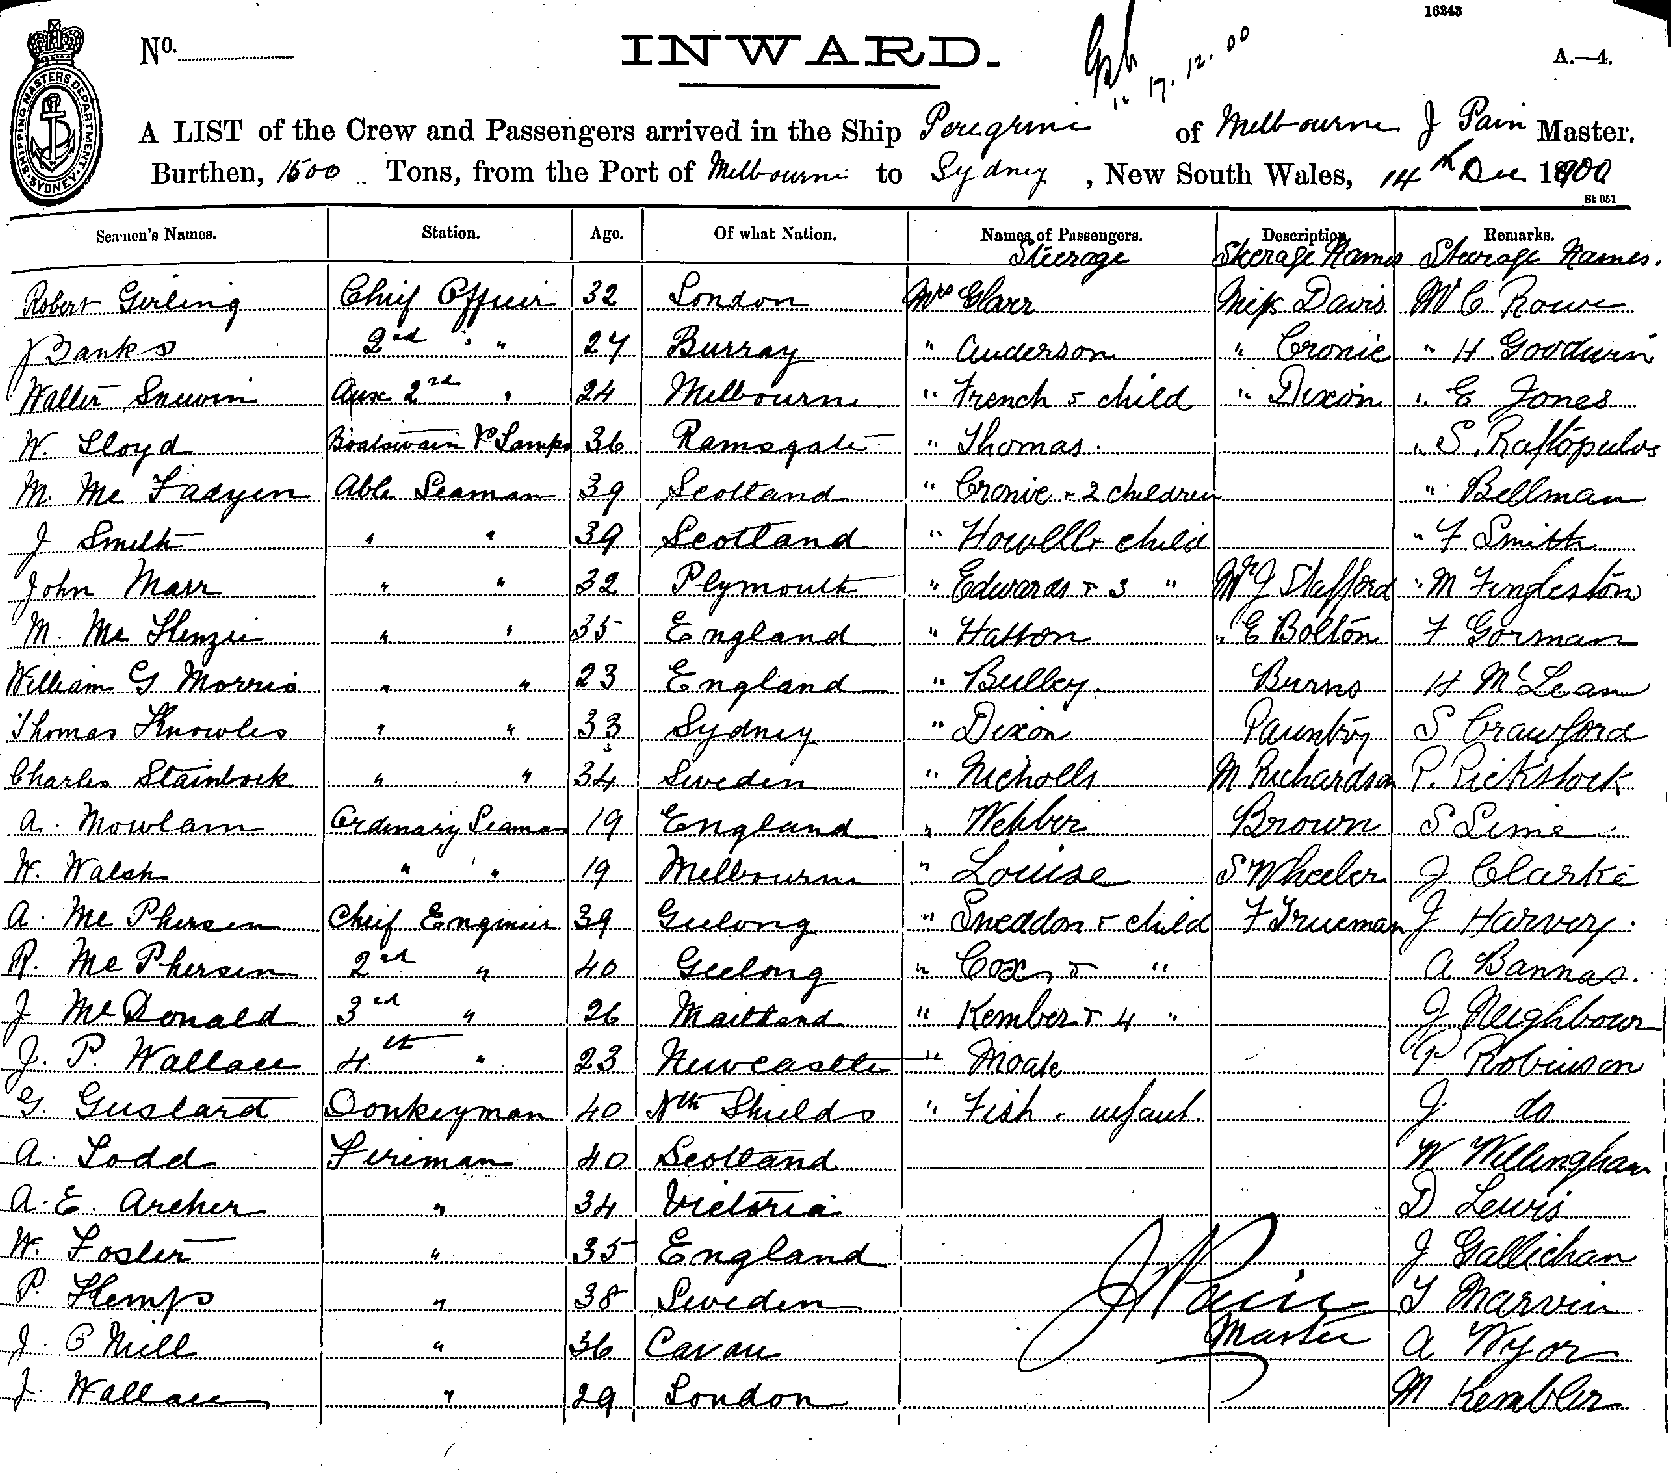 16243
No. INWARD. 17.12.00 A.—4.
SHIPPING MASTERS DEPARTMENT SYDNEY
A LIST of the Crew and Passengers arrived in the Ship Peregrine of Melbourne J Pain Master.
Burthen, 1500 Tons, from the Port of Melbourne to Sydney, New South Wales, 14th Dec 1900
St 051
Seamen's Names. Station. Age. Of what Nation. Names of Passengers. Description. Remarks.
Steerage Steerage Names Steerage Names.
Robert Girling Chief Officer 32 London Mrs Clarr Miss Davis Mr C Rowe
J Banks 2nd " " 27 Burray " Anderson " Cronie " H. Goodwin
Walter Snewin Aux 2nd " 24 Melbourne " French & child " Dixon " E Jones
W. Lloyd Boatswain & Lamps 36 Ramsgate " Thomas. " S. Raftopulos
M. Mc Fadyen Able Seaman 39 Scotland " Cronie & 2 children " Bellman
J Smith " " 39 Scotland " Howell & child " F Smith
John Marr " " 32 Plymouth " Edwards & 3 " Mr J Stafford " M Fingleston
M. Mc Kenzie " " 35 England " Hatton " E Bolton F Gorman
William G Morris " " 23 England " Bulley. Burns H McLean
Thomas Knowles " " 33 Sydney " Dixon Paunby S Crawford
Charles Stainbock " " 34 Sweden " Nicholls M Richardson R. Rickstock
A. Mowlam Ordinary Seaman 19 England " Webber Brown S Lime
W. Walsh " " 19 Melbourne " Louise S Wheeler J Clarke
A. Mc Pherson Chief Engineer 39 Geelong " Sneddon & child F Trueman J Harvey.
R. Mc Pherson 2nd " 40 Geelong " Cox & " A Bannas.
J McDonald 3rd " 26 Maitland " Kember & 4 " J Neighbour
J. P. Wallace 4th " 23 Newcastle " Moate P Robinson
G. Gustard Donkeyman 40 Nth Shields " Fish & infant. J do
A. Todd Fireman 40 Scotland W Willingham
A. E. Archer " 34 Victoria D Lewis
W. Foster " 35 England J Gallichan
P Kemps " 38 Sweden J Pain T Marvin
J. O Neill " 36 Cavan Master A Wyor
J Wallace " 29 London M Kembler